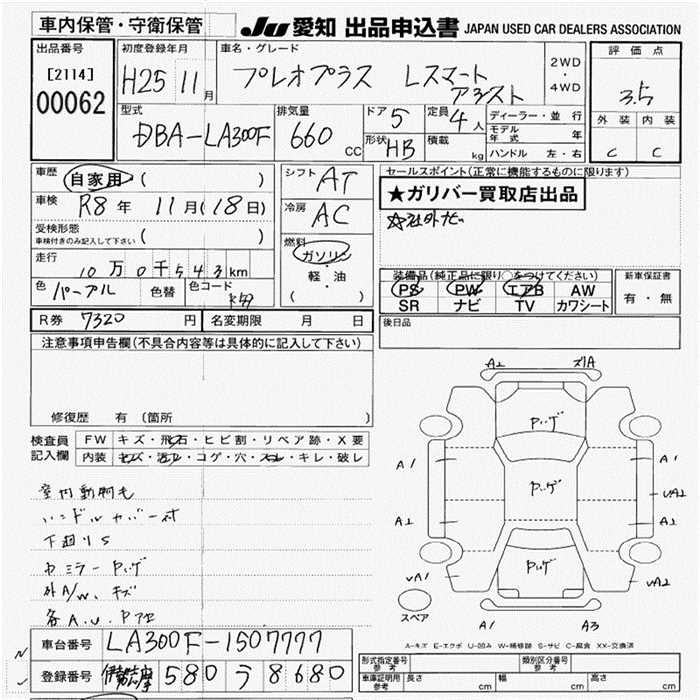 車内保管・守衛保管
JU 愛知 出品申込書 JAPAN USED CAR DEALERS ASSOCIATION
出品番号
[2114]
00062
初度登録年月
H25 11月
車名・グレード
プレオプラス Lスマート
アシスト
2WD
・
4WD
評価点
3.5
外装 内装
C C
型式
DBA-LA300F
排気量
660 CC
ドア 5
形状 HB
定員 4人
積載 kg
ディーラー・並行
モデル年式 年
ハンドル 左・右
車歴 自家用 ( )
車検 R8年 11月(18日)
受検形態
車検付きのみ記入して下さい ( )
走行 10万0千543km
色 パープル 色替 色コード
シフト AT
冷房 AC
燃料
ガソリン
・
軽・油
( )
セールスポイント(正常に機能するものに限ります)
★ガリバー買取店出品
☆社外ナビ
装備品(純正品に限り○をつけてください)
PS PW エアB AW
SR ナビ TV カワシート
新車保証書
有・無
R券 7320円 名変期限 月 日
後日品
注意事項申告欄(不具合内容等は具体的に記入して下さい)
修復歴 有 (箇所 )
検査員
記入欄
FW キズ・飛石・ヒビ割・リペア跡・X要
内装 キズ・汚れ・コゲ・穴・スレ・キレ・破レ
室内動物毛
ハンドルカバー付
下廻りS
カミラー Pゲ
外A/W、キズ
各A.U.Pアセ
A2 ズリA
Pハゲ
A1 A1
Pハゲ
UA2
A2 A2
Pハゲ
UA1 UA2
スペア
A1 A3
A-キズ E-エクボ U-凹み W-補修跡 S-サビ C-腐食 XX-交換済
車台番号 LA300F-1507777
登録番号 580 う 8680
型式指定番号 参考
類別区分番号 参考
車庫証明用 参考 長さ cm 幅 cm 高さ cm